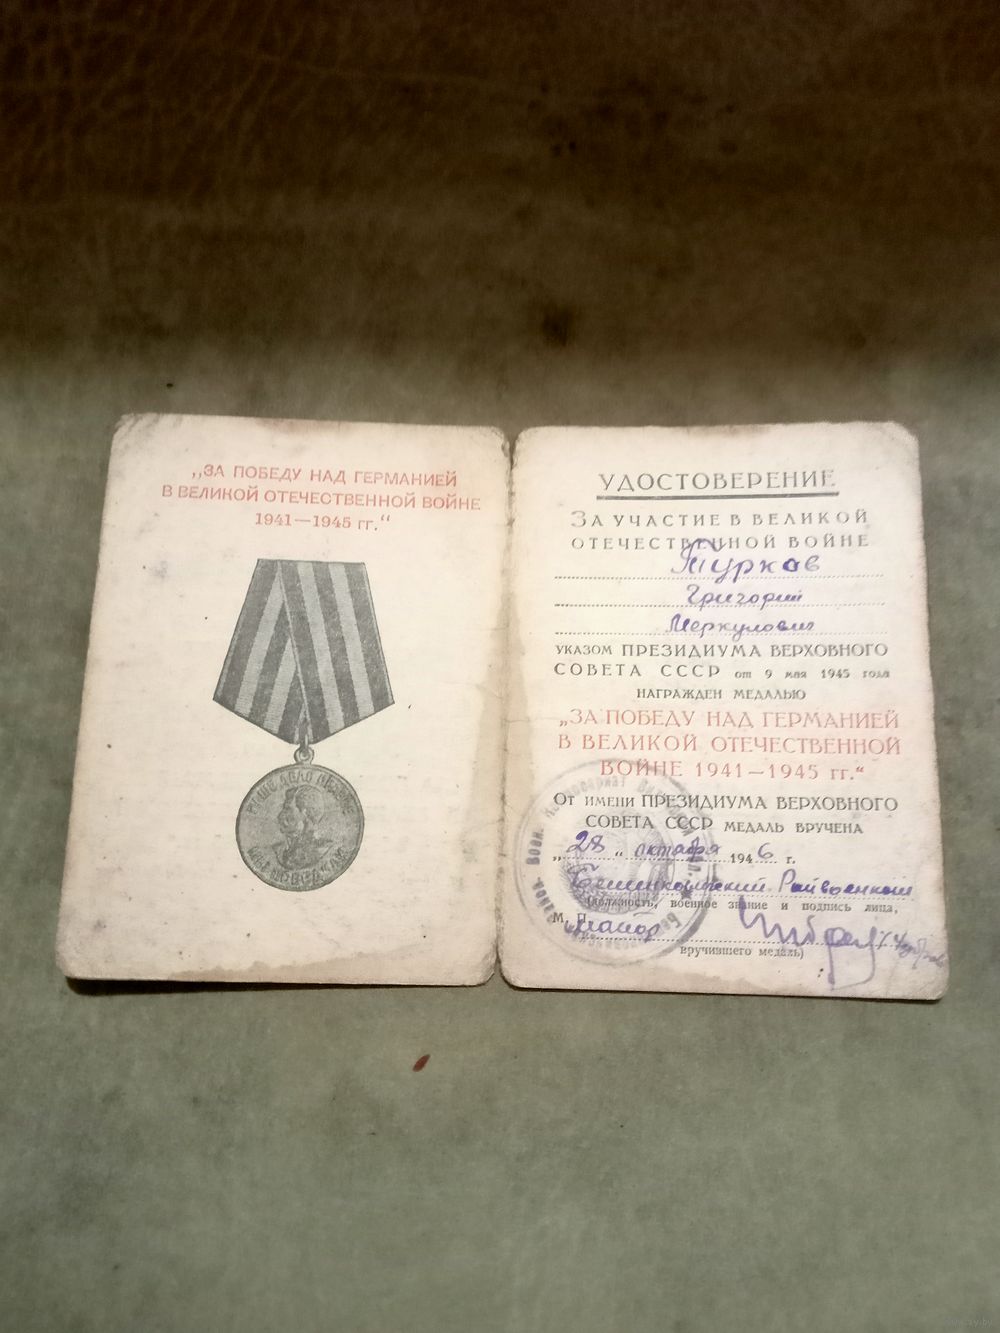 „ЗА ПОБЕДУ НАД ГЕРМАНИЕЙ
В ВЕЛИКОЙ ОТЕЧЕСТВЕННОЙ ВОЙНЕ
1941—1945 гг.“
НАШЕ ДЕЛО ПРАВОЕ
МЫ ПОБЕДИЛИ
УДОСТОВЕРЕНИЕ
ЗА УЧАСТИЕ В ВЕЛИКОЙ
ОТЕЧЕСТВЕННОЙ ВОЙНЕ
Турков
Григорий
Меркулович
УКАЗОМ ПРЕЗИДИУМА ВЕРХОВНОГО
СОВЕТА СССР от 9 мая 1945 года
НАГРАЖДЕН МЕДАЛЬЮ
„ЗА ПОБЕДУ НАД ГЕРМАНИЕЙ
В ВЕЛИКОЙ ОТЕЧЕСТВЕННОЙ
ВОЙНЕ 1941—1945 гг.“
ОТ ИМЕНИ ПРЕЗИДИУМА ВЕРХОВНОГО
СОВЕТА СССР МЕДАЛЬ ВРУЧЕНА
„28“ октября 1946 г.
Бешенковичский Райвоенком
(должность, военное звание и подпись лица,
М. П. Майор
вручившего медаль)